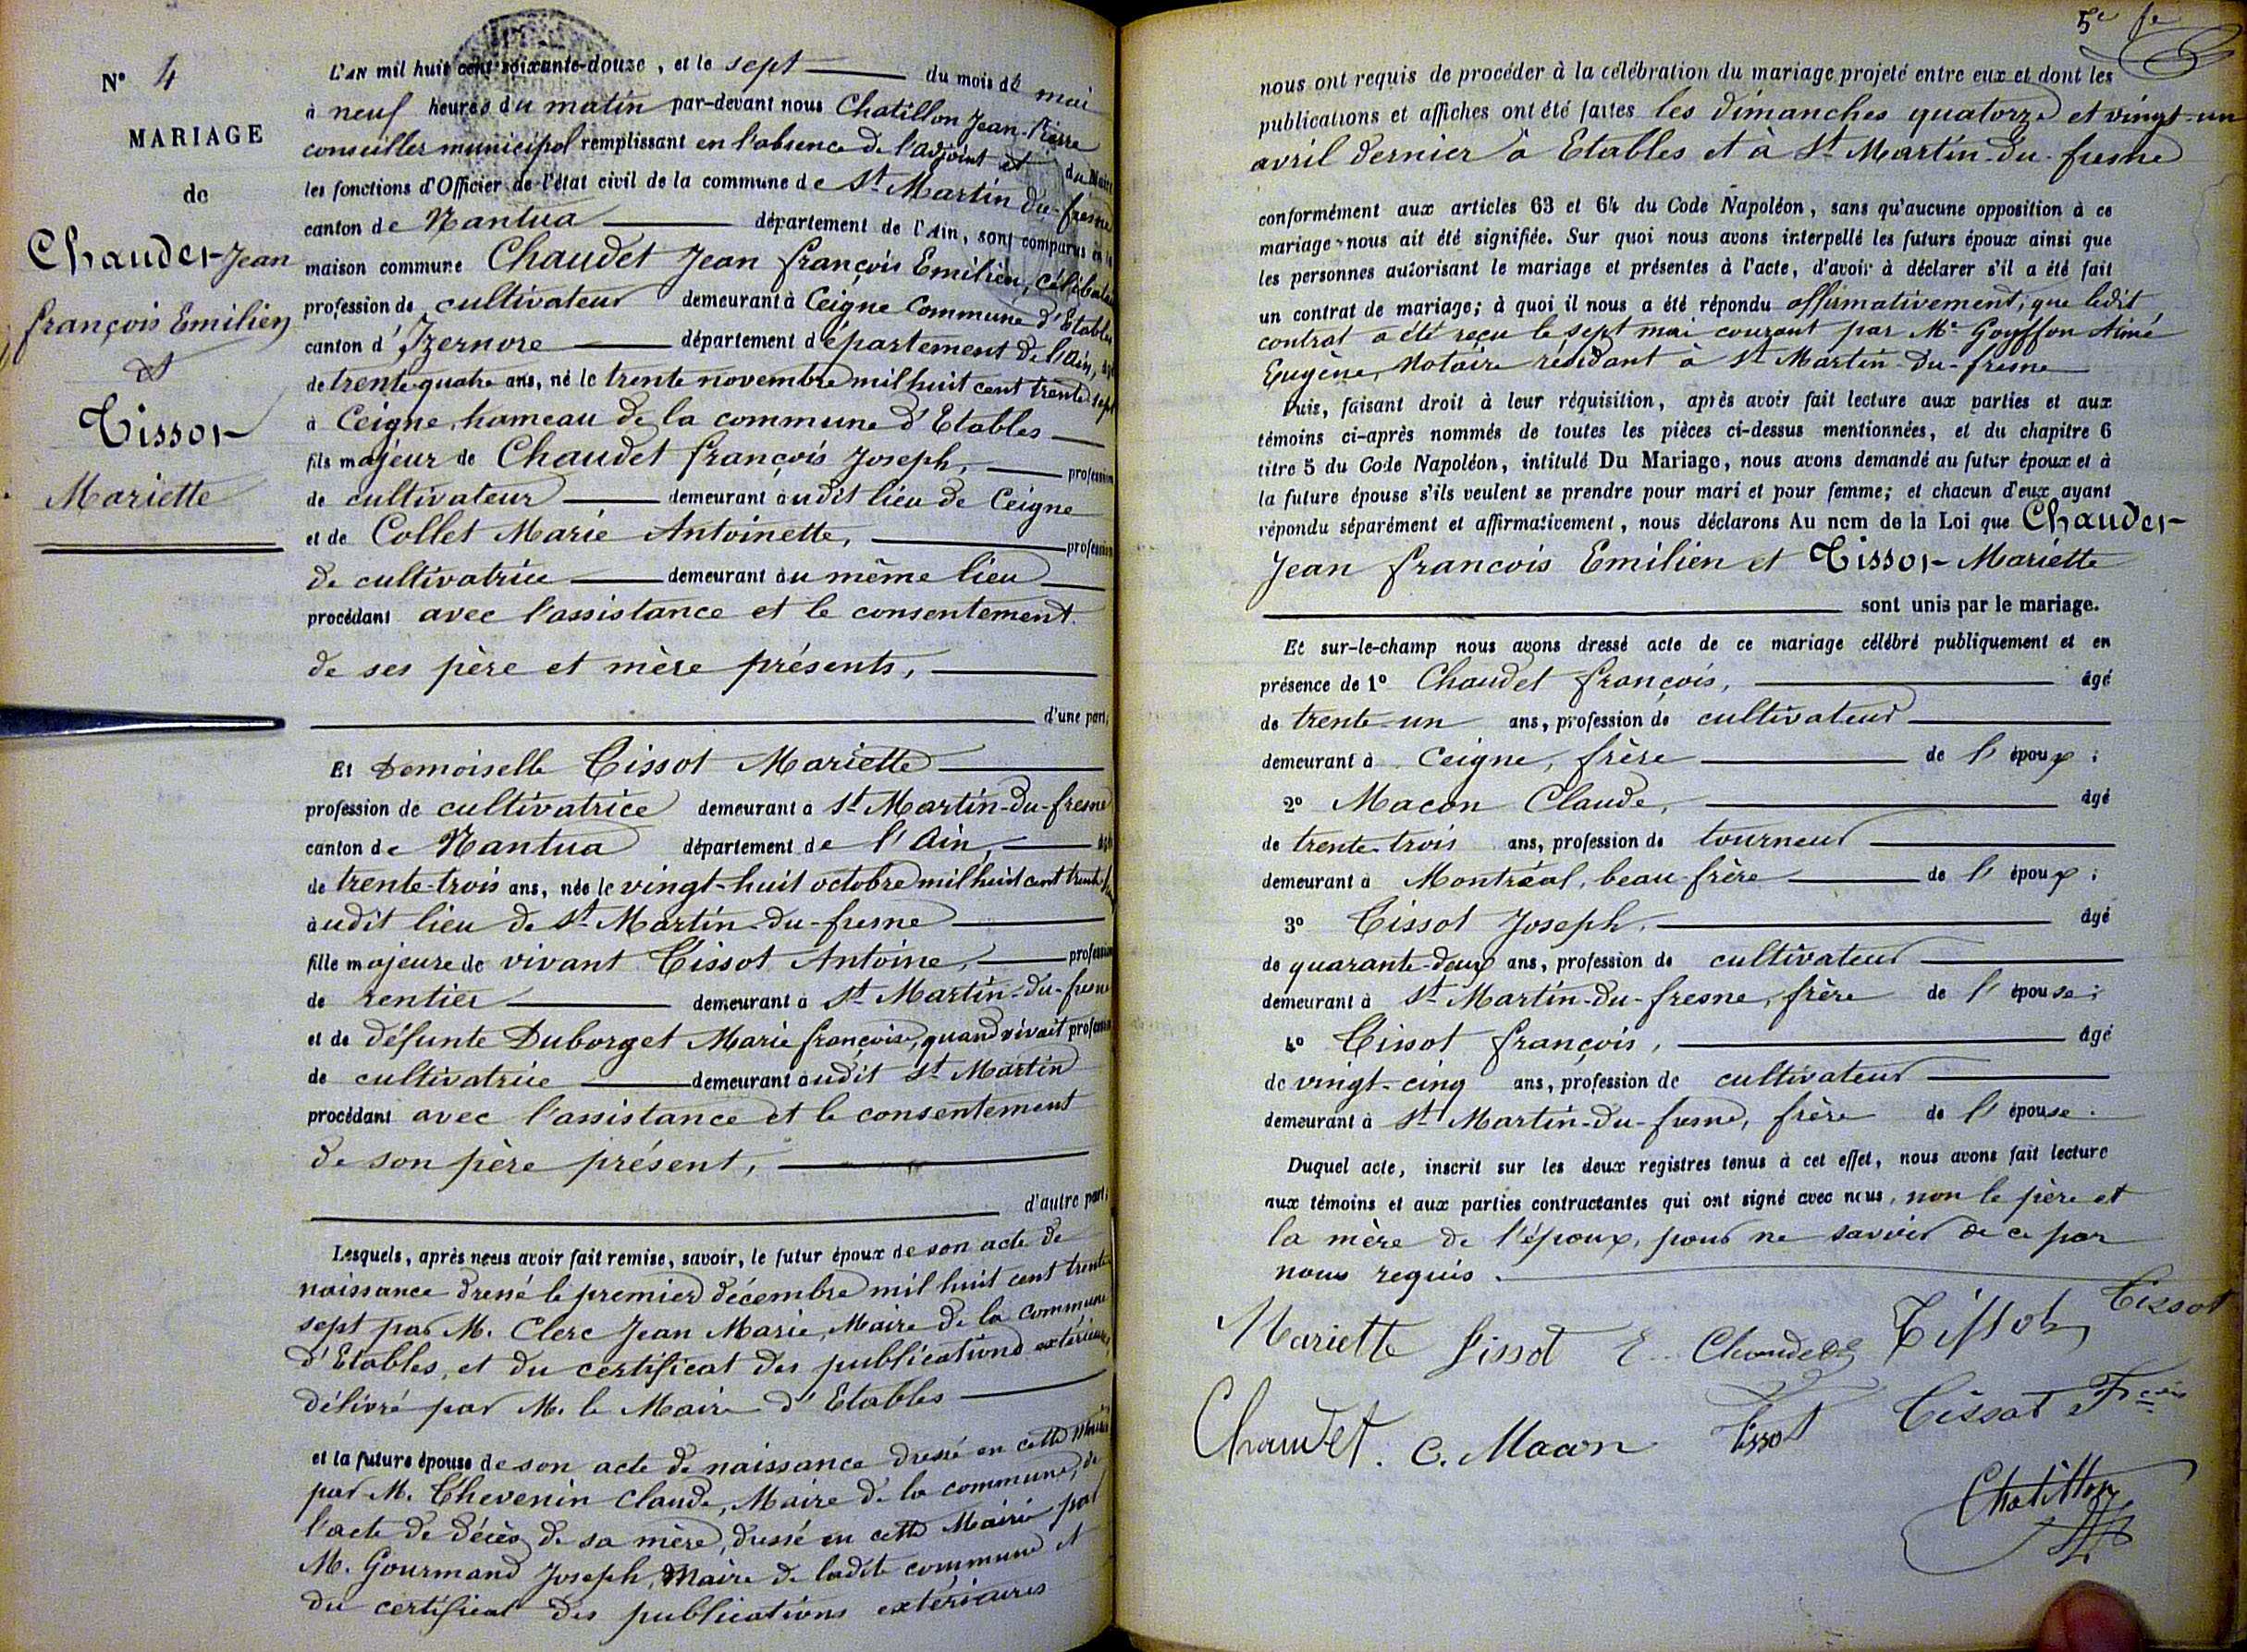 N° 4
MARIAGE
de
Chaudet Jean
françois Emilien
et
Tissot
Mariette
L'AN mil huit cent soixante-douze, et le sept du mois de mai
à neuf heures du matin par-devant nous Chatillon Jean-Pierre
conseiller municipal remplissant en l'absence de l'adjoint et du Maire
les fonctions d'Officier de l'état civil de la commune de St Martin du-fresne
canton de Nantua département de l'Ain, sont comparus en la
maison commune Chaudet Jean françois Emilien, célibataire
profession de cultivateur demeurant à Ceigne commune d'Etables
canton d'Izernore département d département de l'Ain, âgé
de trente-quatre ans, né le trente novembre mil huit cent trente-sept
à Ceigne, hameau de la commune d'Etables
fils majeur de Chaudet françois Joseph, profession
de cultivateur demeurant audit lieu de Ceigne
et de Collet Marie Antoinette, profession
de cultivatrice demeurant au même lieu
procédant avec l'assistance et le consentement
de ses père et mère présents,
d'une part;
Et Demoiselle Tissot Mariette
profession de cultivatrice demeurant à St Martin-du-fresne
canton de Nantua département de l'Ain, âgée
de trente-trois ans, née le vingt-huit octobre mil huit cent trente-
audit lieu de St Martin-du-fresne
fille majeure de vivant Tissot Antoine, profession
de rentier demeurant à St Martin-du-fresne
et de défunte Duborget Marie françoise, quand vivait profession
de cultivatrice demeurant audit St Martin
procédant avec l'assistance et le consentement
de son père présent,
d'autre part;
Lesquels, après nous avoir fait remise, savoir, le futur époux de son acte de
naissance dressé le premier décembre mil huit cent trente
sept par M. Clerc Jean Marie, Maire de la commune
d'Etables, et du certificat des publications extérieures,
délivré par M. le Maire d'Etables
et la future épouse de son acte de naissance dressé en cette Mairie
par M. Thevenin Claude, Maire de la commune, de
l'acte de décès de sa mère, dressé en cette Mairie par
M. Gourmand Joseph, Maire de ladite commune et
du certificat des publications extérieures
5e fe
nous ont requis de procéder à la célébration du mariage projeté entre eux et dont les
publications et affiches ont été faites les dimanches quatorze et vingt-un
avril dernier à Etables et à St Martin-du-fresne
conformément aux articles 63 et 64 du Code Napoléon, sans qu'aucune opposition à ce
mariage nous ait été signifiée. Sur quoi nous avons interpellé les futurs époux ainsi que
les personnes autorisant le mariage et présentes à l'acte, d'avoir à déclarer s'il a été fait
un contrat de mariage; à quoi il nous a été répondu affirmativement, que ledit
contrat a été reçu le sept mai courant par Me Goyffon Aimé
Eugène, Notaire résidant à St Martin-du-fresne
Puis, faisant droit à leur réquisition, après avoir fait lecture aux parties et aux
témoins ci-après nommés de toutes les pièces ci-dessus mentionnées, et du chapitre 6
titre 5 du Code Napoléon, intitulé Du Mariage, nous avons demandé au futur époux et à
la future épouse s'ils veulent se prendre pour mari et pour femme; et chacun d'eux ayant
répondu séparément et affirmativement, nous déclarons Au nom de la Loi que Chaudet
Jean francois Emilien et Tissot Mariette
sont unis par le mariage.
Et sur-le-champ nous avons dressé acte de ce mariage célébré publiquement et en
présence de 1° Chaudet françois, âgé
de trente-un ans, profession de cultivateur
demeurant à Ceigne, frère de l'époux;
2° Macon Claude, âgé
de trente-trois ans, profession de tourneur
demeurant à Montréal, beau-frère de l'époux;
3° Tissot Joseph, âgé
de quarante-deux ans, profession de cultivateur
demeurant à St Martin-du-fresne, frère de l'épouse;
4° Tissot françois, âgé
de vingt-cinq ans, profession de cultivateur
demeurant à St Martin-du-fresne, frère de l'épouse.
Duquel acte, inscrit sur les deux registres tenus à cet effet, nous avons fait lecture
aux témoins et aux parties contractantes qui ont signé avec nous, non le père et
la mère de l'époux, pour ne savoir de ce par
nous requis.
Mariette Tissot E. Chaudet Tissot Tissot
Chaudet. C. Macon Tissot Tissot Fcois
Chatillon